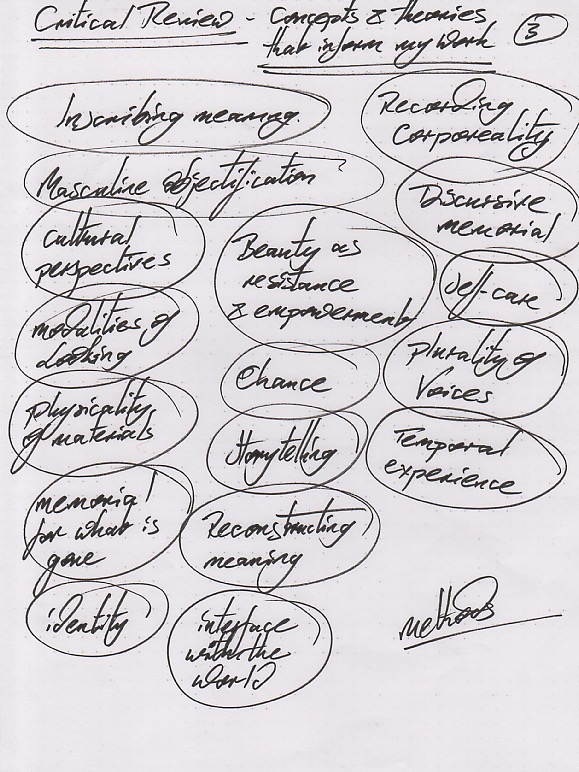 Critical Review - concepts & theories
that inform my work
3
Inscribing meaning
Recording
corporeality
Masculine objectification
Discursive
memorial
Cultural
perspectives
Beauty as
resistance
& empowerment
Self-care
modalities of
Looking
Plurality of
Voices
Chance
physicality
of materials
Storytelling
Temporal
experience
memorial
for what is
gone
Reconstructing
meaning
identity
interface
with the
world
methods